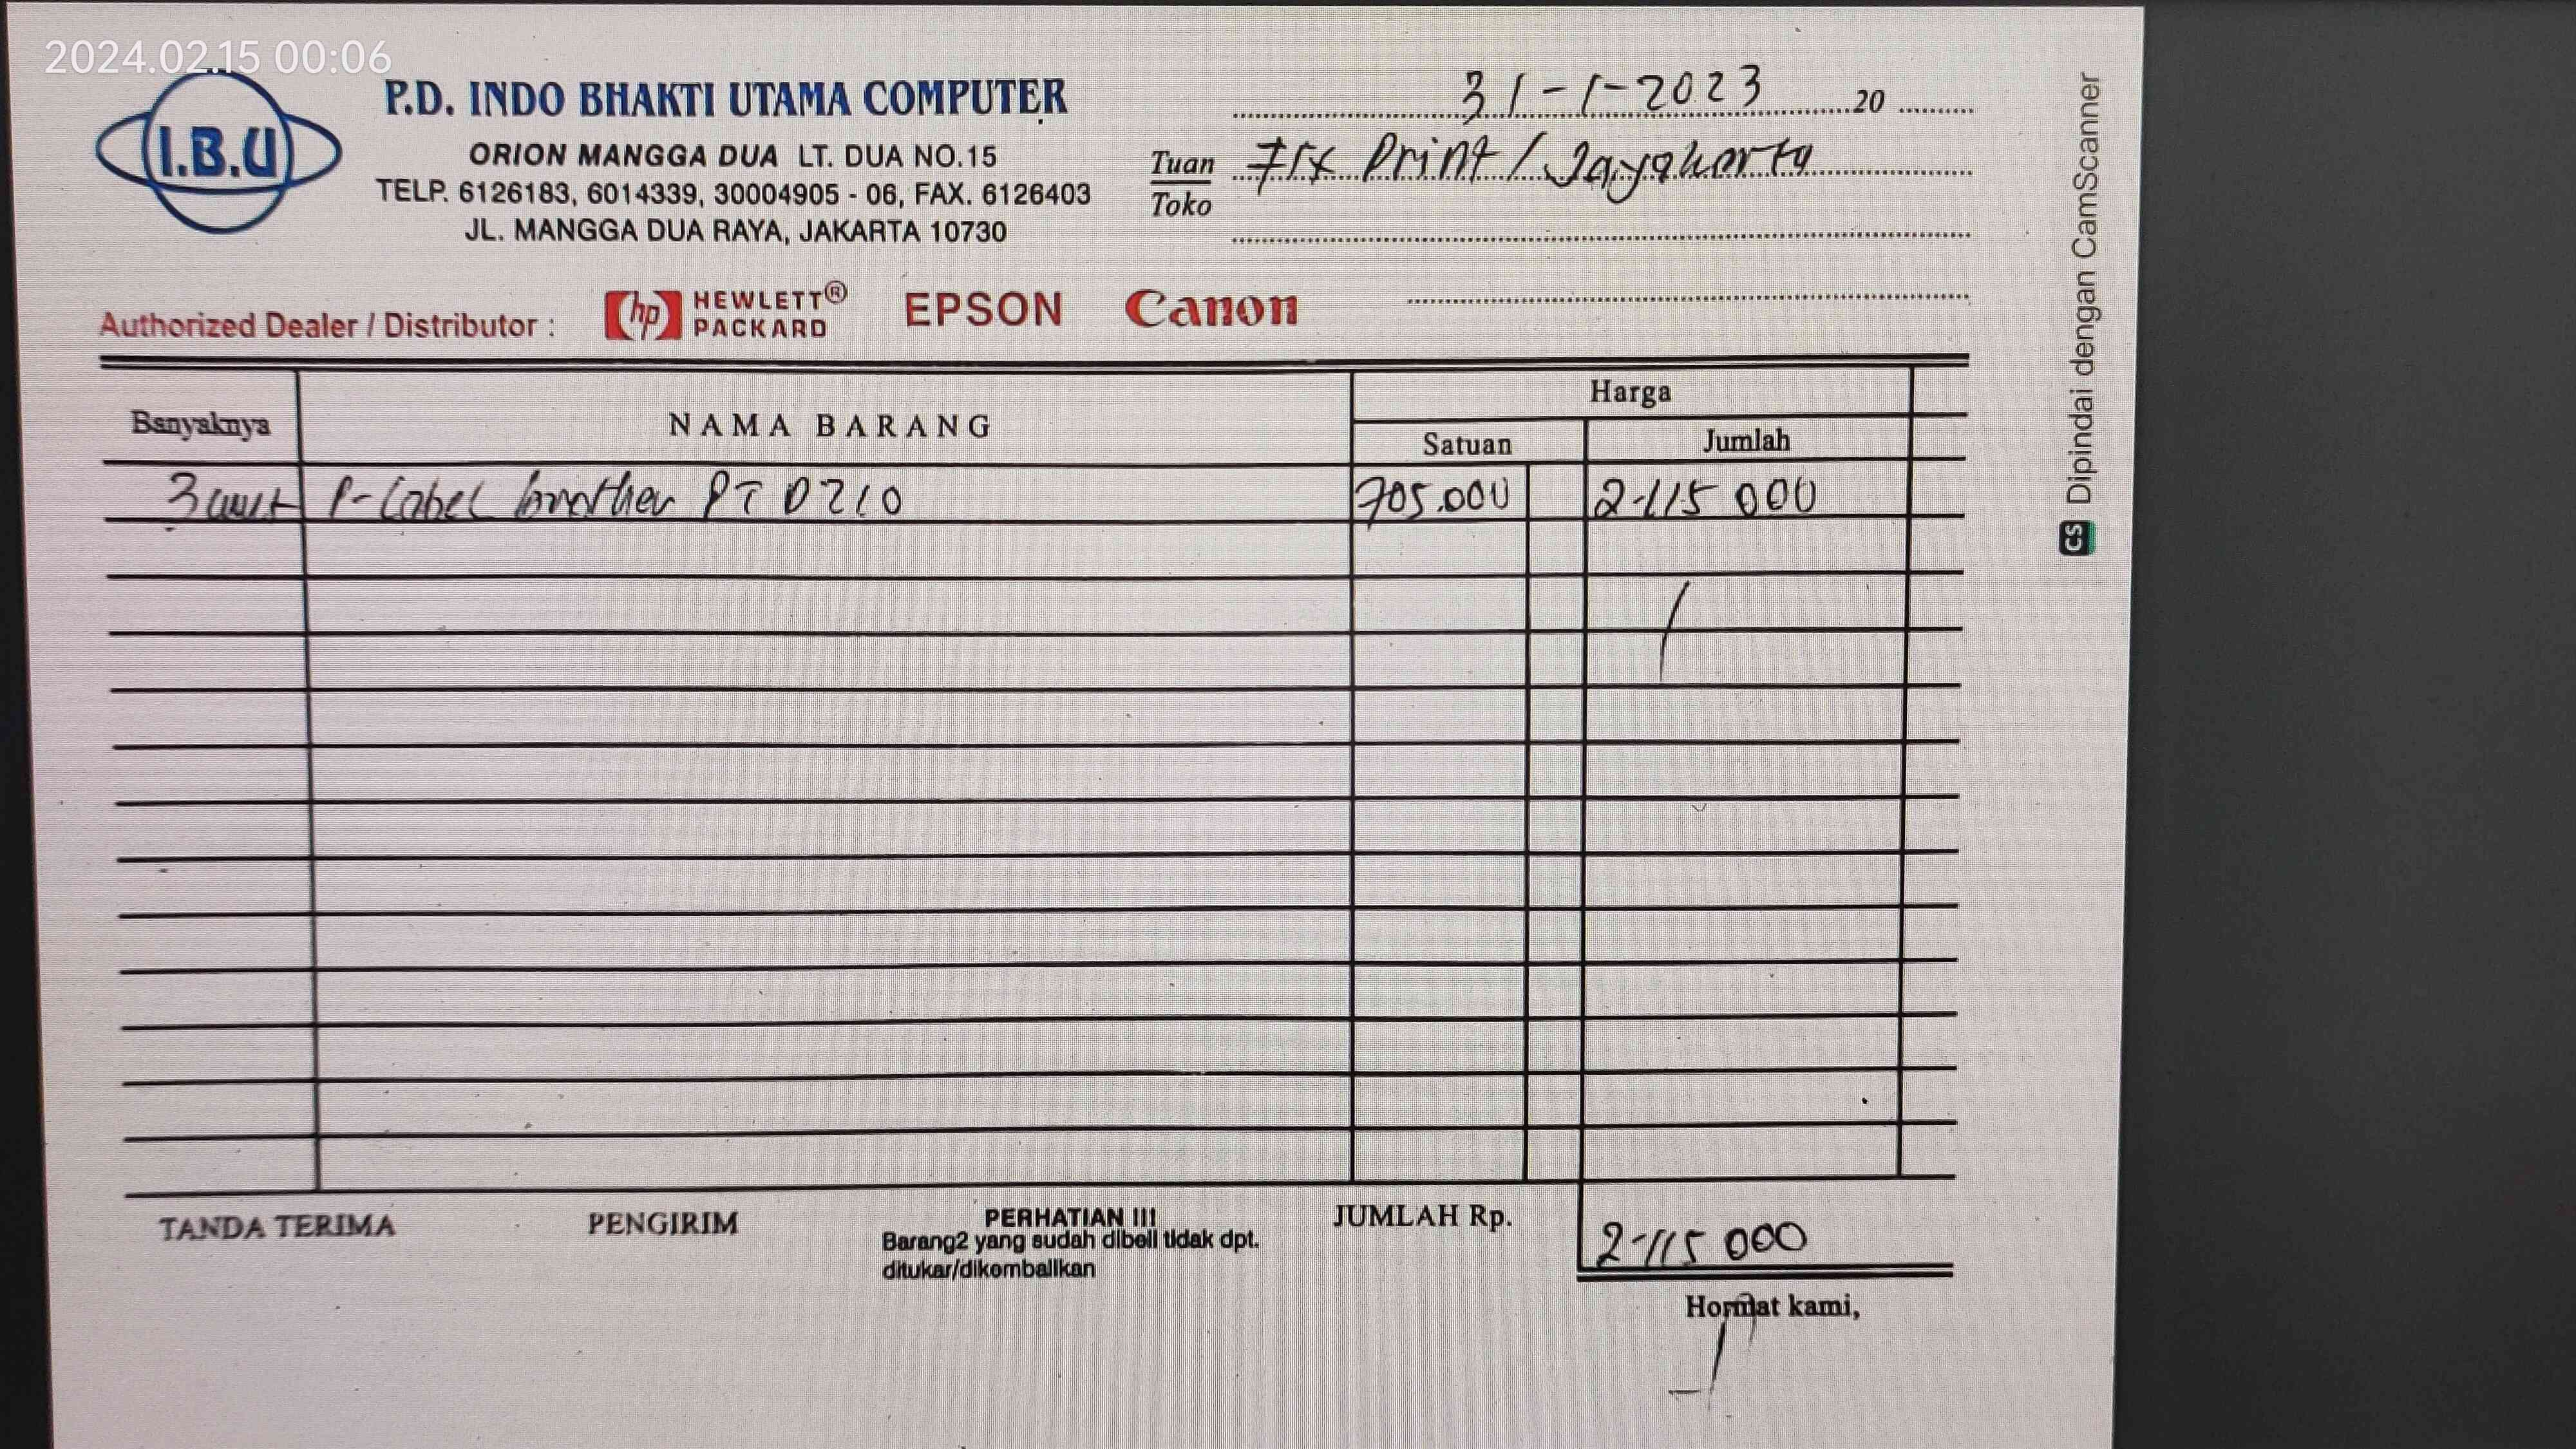 2024.02.15 00:06
I.B.U
P.D. INDO BHAKTI UTAMA COMPUTER
ORION MANGGA DUA LT. DUA NO.15
TELP. 6126183, 6014339, 30004905 - 06, FAX. 6126403
JL. MANGGA DUA RAYA, JAKARTA 10730
31-1-2023 20
Tuan
Toko
Print / Jayakarta
Authorized Dealer / Distributor :
hp HEWLETT® PACKARD
EPSON
Canon
Banyaknya NAMA BARANG Harga
Satuan Jumlah
3 unit P-Label brother PT D210 705.000 2.115 000
TANDA TERIMA PENGIRIM
PERHATIAN !!!
Barang2 yang sudah dibeli tidak dpt.
ditukar/dikembalikan
JUMLAH Rp. 2.115 000
Hormat kami,
CS Dipindai dengan CamScanner